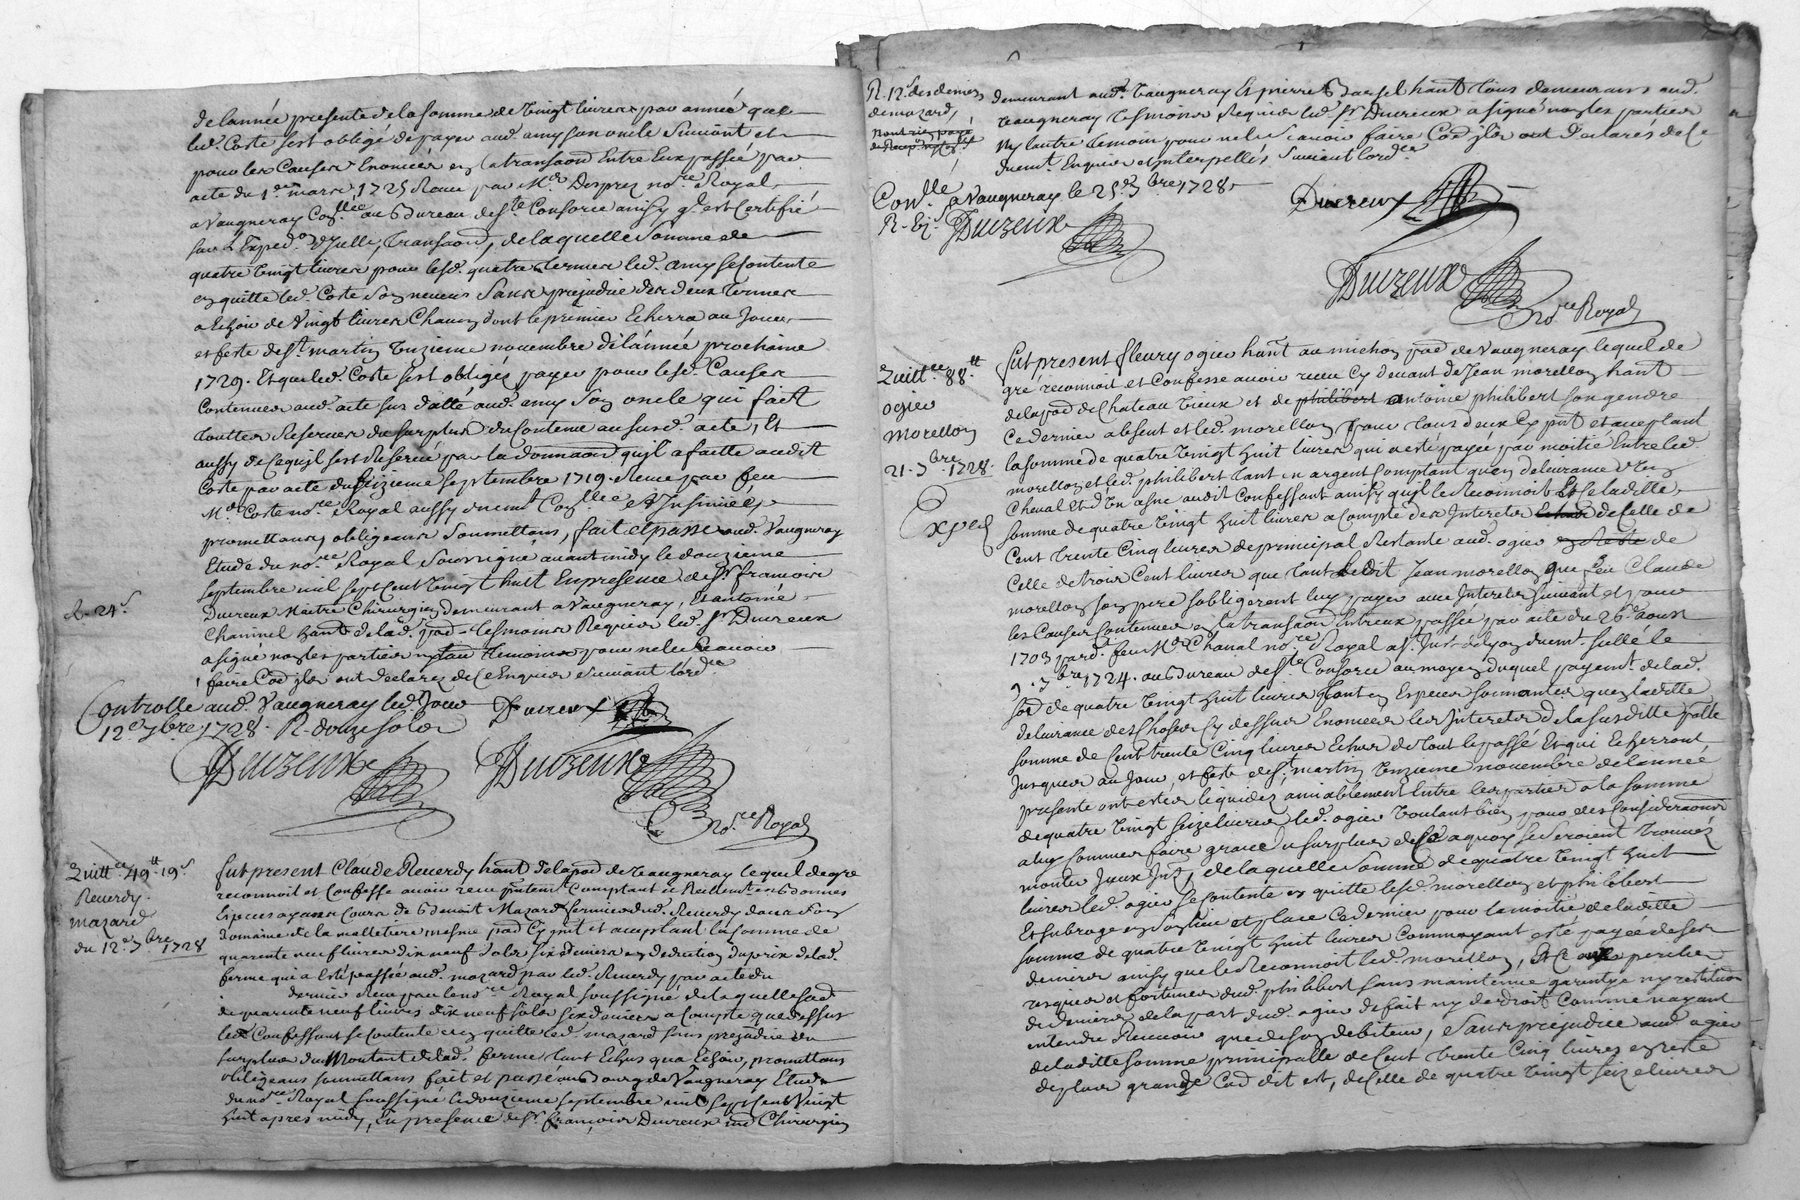 de lannée presente de la somme de vingt livres par année que
led. Coste sest obligé de payer aud. amy son oncle Suivant et
pour les Causes Enoncées en la transaon Entre Eux passée par
acte du 1.er mars 1725 Receu par Me. Desprez no.re Royal
a Vaugneray Con.llée au Bureau de St.e Consorce ainsy q.l est Certifié
sur L'Exped.on d'Icelle, transaon, de laquelle Somme de
quatre vingt livres pour lesd. quatre termes led. amy se Contente
en quitte led. Coste Son neveu Sans prejudice des deux termes
a Echoir de Vingt livres Chacun dont le premier Echerra au Jour
et feste de St. martin Unzieme novembre de lannée prochaine
1729. Et que led. Coste sest obligé payer pour lesd. Causes
Contenues aud. acte sus datté aud. amy Son oncle qui fait
touttes Reserves du surplus du Contenu au susd. acte, Et
aussy de Cequil sest Reservé par la donnaon quil a faitte audit
Coste par acte du seizieme septembre 1719. Receu par feu
Me. Coste no.re Royal aussy duemt Con.llée et Insinuée
promettans obligeans Soumettans, fait et passé aud. Vaugneray
Etude du no.re Royal Soussigné avant midy le douzieme
septembre mil sept Cent vingt huit En presence de Sr. francois
Ducreux Maitre Chirurgien demeurant a Vaugneray, Et antoine
R. 24s
Chamnel hant de lad. par. tesmoins Requis led. Sr. Ducreux
a signé non les parties ny lau. temoin pour ne le Scavoir
faire Cod ilz ont declarez de Ce Enquis Suivant lord.ce
Controlle aud. Vaugneray led. Jour
12e. 7bre 1728. R. douze sols
Ducreux
Duizeux
Duizeux
No.re Royal
Quitt.ce 49tt 19s
Reverdy
mazard
du 12e. 7bre 1728
fut present Claude Reverdy hant de la par de Vaugneray lequel de gre
reconnoit et Confesse avoir receu pntement Comptant et Reellement en bonnes
Especes ayans Cours de benoit Mazard fermier dud. Reverdy dans son
domaine de la malletiere mesme par Cy pnt et acceptant la Somme de
quarente neuf livres dix neuf Sols six deniers en deduction du prix de lad.
ferme qui a Esté passée aud. mazard par led. Reverdy par acte du
dernier Receu par le no.re Royal soussigné de laquelle som
de quarente neuf livres dix neuf sols six deniers a Compte que dessus
led. Confessant se Contente en quitte led. mazard sans prejudice du
surplus du Montant de lad. ferme tant Echus qua Echoir, promettans
obligeans soumettans fait et passé au Bourg de Vaugneray Etude
du no.re Royal soussigné le douzieme septembre mil sept Cent Vingt
huit apres midy, En presence de Sr. francois Ducreux me Chirurgien
R. 12s des deniers
de mazard,
demeurant aud. Vaugneray Et pierre hant tous demeurans aud.
Vaugneray tesmoins Requis led. Sr. Ducreux a signé non les parties
ny lautre temoin pour ne le Scavoir faire Cod ilz ont declarés de Ce
duemt. Enquis et interpellés Suivant lord.ce
Con.llé a Vaugneray le 25e 7bre 1728
R. Duizeux
Ducreux
Duizeux
No.re Royal
Quitt.ce 88tt
ogier
Morellon
21. 7bre 1728.
Expé
fut present fleury ogier hant au michon par de Vaugneray lequel de
gre reconnoit et Confesse avoir receu Cy devant de Jean morellon hant
de la par de Chateau Vieux et de philibert antoine philibert son gendre
Ce dernier absent et led. morellon pour tous deux Cy pnt et acceptant
la somme de quatre vingt huit livres qui a esté payée par moitié Entre led
morellon et led. philibert tant en argent Comptant quen delivrance d'un
Cheval Et d'un asne audit Confessant ainsy quil le Reconnoit Et Celaditte
somme de quatre vingt huit livres a Compte des Interets de Celle de
Cent trente Cinq livres de principal Restante aud. ogier en Reste de
Celle de trois Cent livres que tant ledit Jean morellon que feu Claude
morellon son pere sobligerent luy payer avec Interets Suivant et pour
les Causes Contenues en la transaon Entreux passée par acte du 26e aoust
1703 pard. feu Me Chanal no.re Royal duemt. sellé le
9. 7bre 1724. au Bureau de St.e Consorce au moyen duquel payemt. de lad.
som de quatre vingt huit livres tant en Especes sonnantes quen laditte
delivrance des Choses Cy dessus Enoncées les Interets de la susditte
somme de Cent trente Cinq livres Echus de tout le passé Et qui Echerront
Jusques au Jour et feste de St. martin Unzieme novembre de lannée
presente ont estés liquidez amiablement Entre les parties a la somme
de quatre vingt seize livres led. ogier Voulant bien pour des Consideraons
a luy Connues faire grace du surplus de Ce a quoy se seroient trouvéz
monter Iceux Int., de laquelle Somme de quatre vingt huit
livres led. ogier se Contente en quitte lesd. morellon et philibert
Et subroge en son lieu et place Ce dernier pour la moitié de laditte
somme de quatre vingt huit livres Comme ayant esté payée de ses
deniers ainsy que le Reconnoit led. morellon, Et Ce aux perilles
risques et fortunes dud. philibert sans maintenue garentye ny restitution
de deniers de la part dud. ogier de fait ny de droit Comme nayant
entendu Recevoir que de son debiteur, Sans prejudice aud. ogier
de laditte Somme principalle de Cent trente Cinq livres en reste
de plus grande Cod dit est, de Celle de quatre vingt seize livres